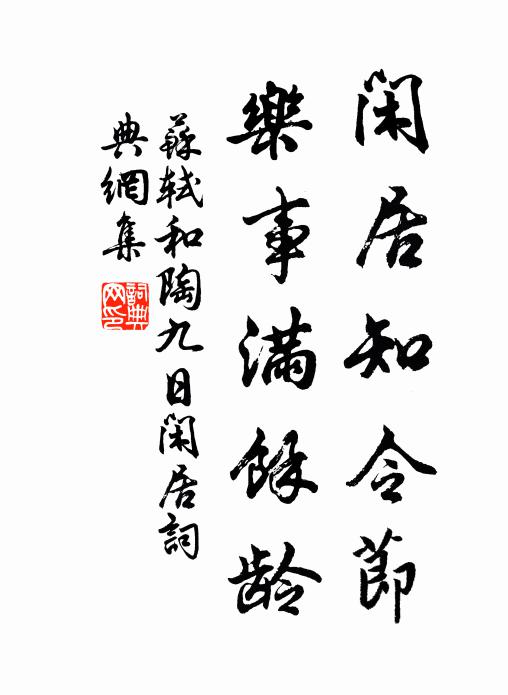 閑居知令節
樂事滿餘齡
蘇軾和陶九日閑居詞
典網集
詞典網印